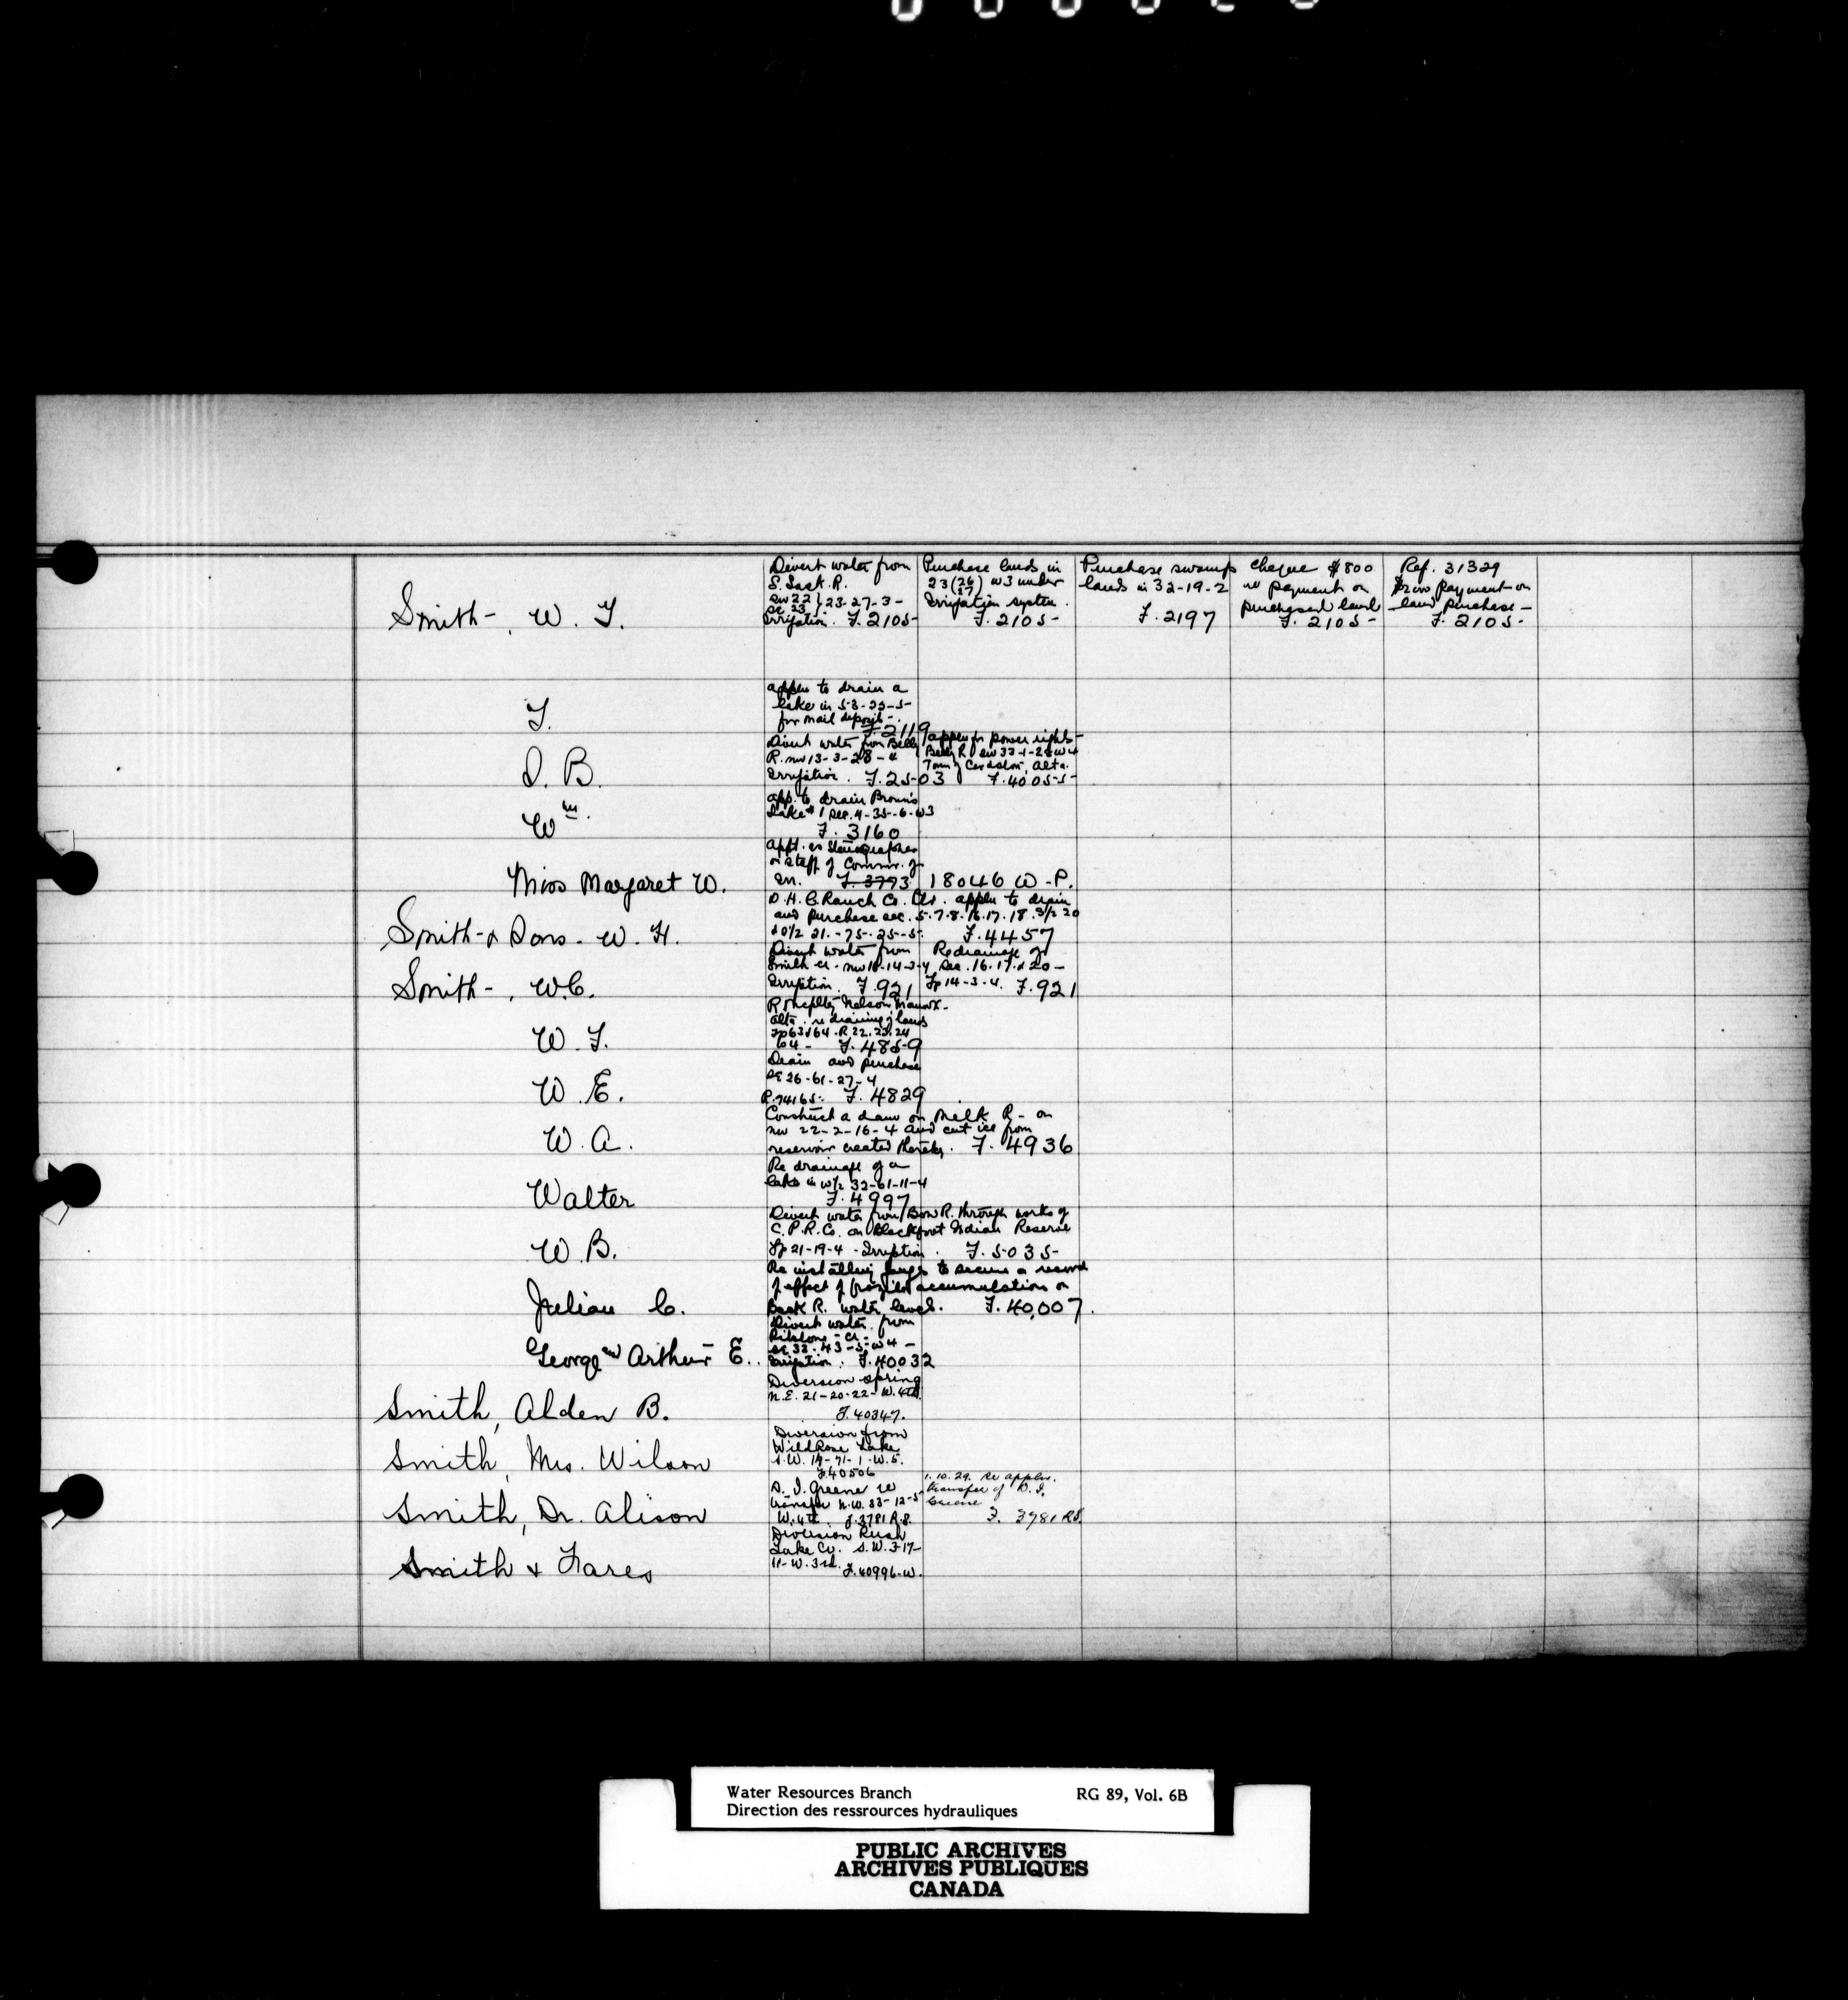 Smith, W. T.
Divert water from
S. Sask. R.
SW 22 } 23-27-3-
SE 23 }
Irrigation. F. 2105
Purchase lands in
23 (26) (27) W3 under
Irrigation system.
F. 2105
Purchase swamp
lands in 32-19-2
F. 2197
Cheque $800
re payment on
purchased land
F. 2105
Ref. 31329
payment on
land purchase -
F. 2105
T.
applen to drain a
lake in 53-25-5-
for marl deposit -
F. 2119
D. B.
Divert water from Belly
R. NW 13-3-28-4
Irrigation. F. 2503
applen for power rights
Belly R. SW 33-1-28 W4
Town of Cardston, Alta.
F. 40055
Wm.
app. to drain Brown's
Lake #1 Sec. 4-35-6-W3
F. 3160
Miss Margaret W.
Appt. as Stenographer
on staff of Commr. of
Irr. F. 3793 18046 W-P.
Smith & Sons - W. H.
D. H. C. Ranch Co. applen to drain
and purchase sec. 5.7.8.16.17.18. S/2 20
21.-75-25-5. F. 4457
Smith, W.C.
Divert water from
Smith Cr. NW 18-14-3-4
Irrigation. F. 921
Re drainage of
Sec. 16.17 & 20 -
Tp 14-3-4. F. 921
W. T.
Nelson
Alta. re draining of lands
Tp 63 & 64. R 22.23.24
W4 - F. 4859
W. E.
Drain and purchase
SE 26-61-27-4
R. 74165. F. 4829
W. A.
Construct a dam on Milk R - on
NW 22-2-16-4 and cut ice from
reservoir created thereby. F. 4936
Walter
Re drainage of a
lake in W/2 32-61-11-4
F. 4997
W. B.
Divert water from Bow R. through works of
C.P.R. Co. on Blackfoot Indian Reserve
Tp 21-19-4 - Irrigation. F. 5035
Julian C.
Re installing gauges to secure a record
of effect of frazil ice accumulation on
Back R. water levels. F. 40,007.
George and Arthur E.
Divert water from
Ribstone Cr.
SE 32-43-5-W4 -
Irrigation. F. 40032
Smith, Alden B.
Diversion spring
N.E. 21-20-22-W. 4th.
F. 40347.
Smith, Mrs. Wilson
Diversion from
Wild Rose Lake
S.W. 19-71-1-W.5.
F. 40506
Smith, Dr. Alison
D. I. Greene re
transfer N.W. 33-12-5
W. 4th. F. 3781 R.S.
1.10.29. Re applen.
transfer of D. I.
Greene
F. 3781 R.S.
Smith & Fares
Diversion Rush
Lake Cr. S.W. 3-17-
11-W. 3rd. F. 40996-W.
Water Resources Branch RG 89, Vol. 6B
Direction des ressrources hydrauliques
PUBLIC ARCHIVES
ARCHIVES PUBLIQUES
CANADA